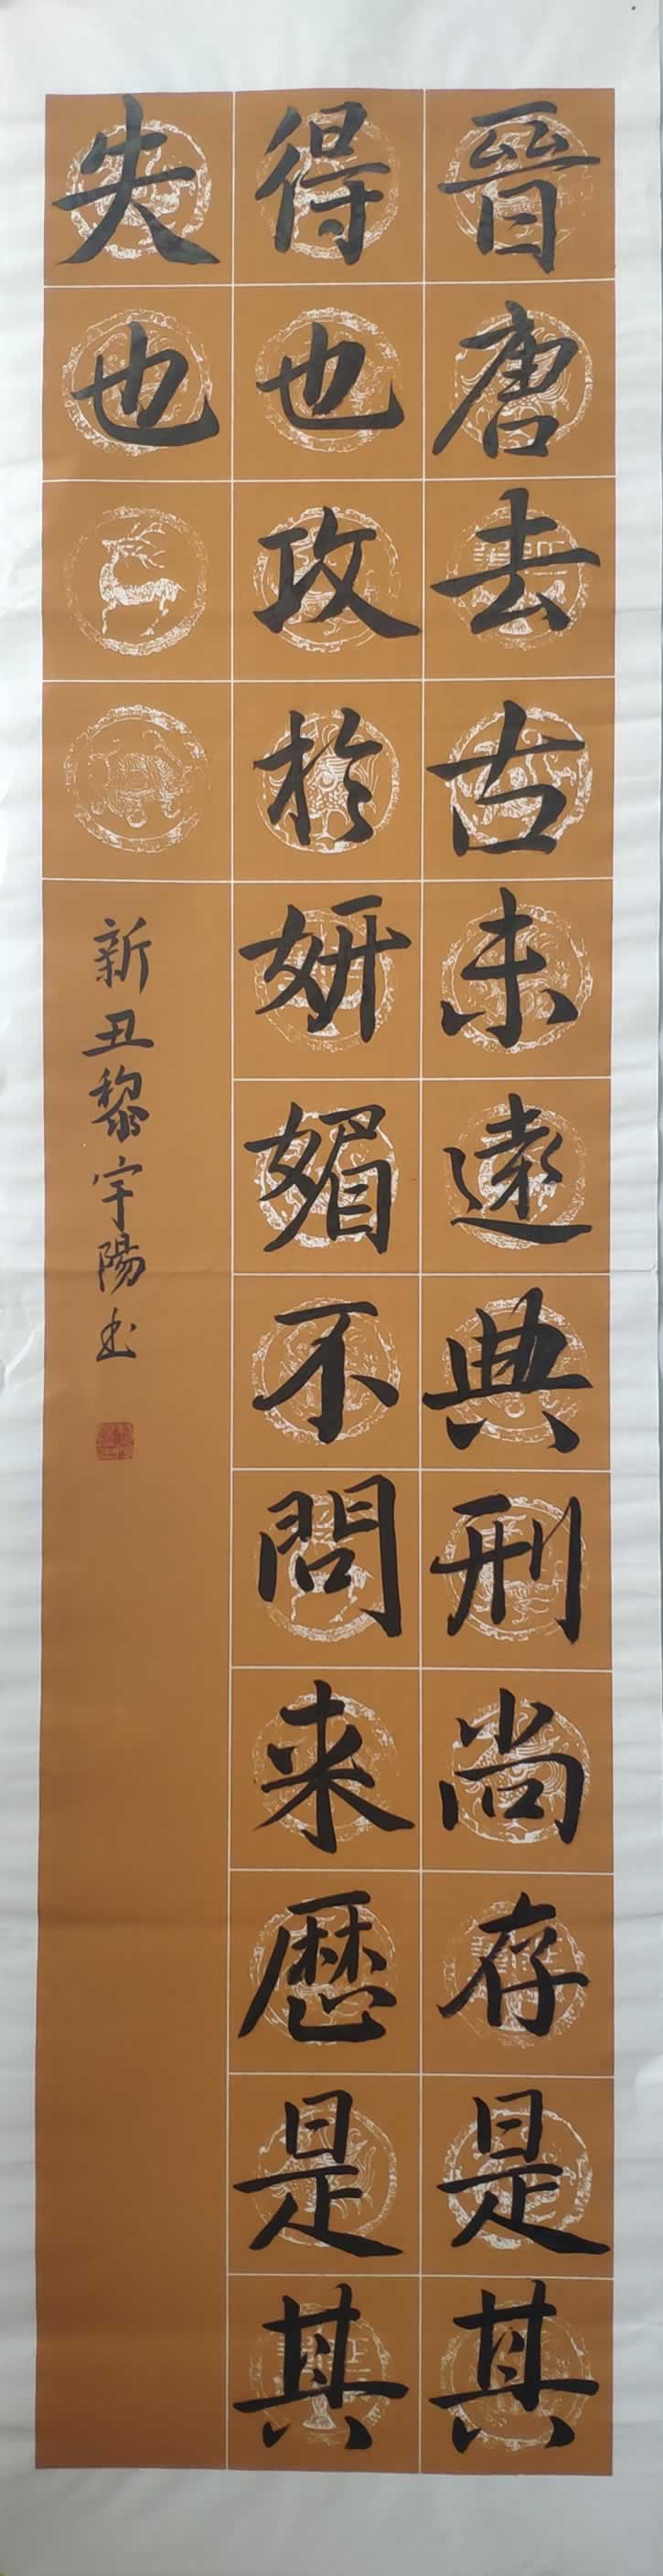 晉唐去古未遠典刑尚存是其
得也攻於妍媚不問来歷是其
失也
新丑黎宇陽书